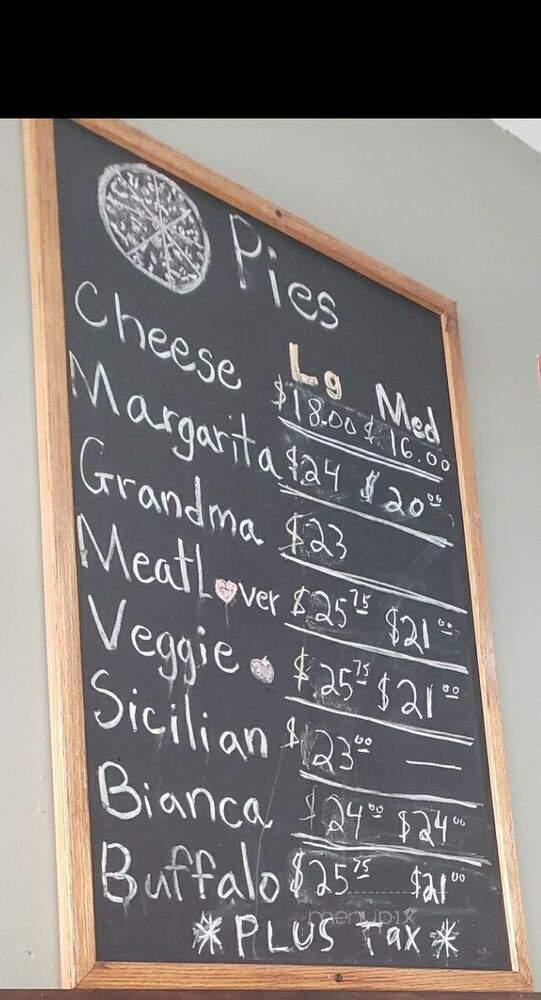 Pies
Lg Med
Cheese $18.00 $16.00
Margarita $24 $20.00
Grandma $23
MeatLover $25.75 $21.00
Veggie $25.75 $21.00
Sicilian $23.00 —
Bianca $24.00 $24.00
Buffalo $25.75 $21.00
menupix
*PLUS Tax*